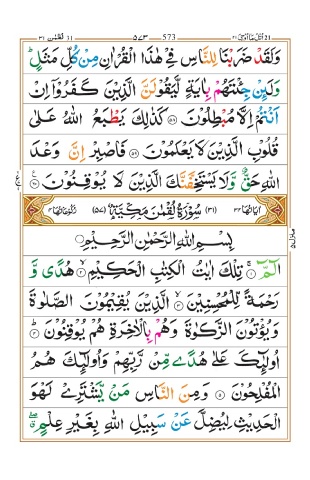 573
وَلَقَدْ ضَرَبْنَا لِلنَّاسِ فِیْ هٰذَا الْقُرْاٰنِ مِنْ كُلِّ مَثَلٍ ؕ
وَلَىِٕنْ جِئْتَهُمْ بِاٰیَةٍ لَّیَقُوْلَنَّ الَّذِیْنَ كَفَرُوْۤا اِنْ
اَنْتُمْ اِلَّا مُبْطِلُوْنَ ۵۸ كَذٰلِكَ یَطْبَعُ اللّٰهُ عَلٰی
قُلُوْبِ الَّذِیْنَ لَا یَعْلَمُوْنَ ۵۹ فَاصْبِرْ اِنَّ وَعْدَ
اللّٰهِ حَقٌّ وَّلَا یَسْتَخِفَّنَّكَ الَّذِیْنَ لَا یُوْقِنُوْنَ ۶۰
اٰیَاتُهَا ۳۴ (۳۱) سُوْرَةُ لُقْمٰنَ مَكِّیَّةٌ (۵۷) رُكُوْعَاتُهَا ۴
بِسْمِ اللّٰهِ الرَّحْمٰنِ الرَّحِیْمِ
الٓمّٓ ۱ تِلْكَ اٰیٰتُ الْكِتٰبِ الْحَكِیْمِ ۲ هُدًی وَّ
رَحْمَةً لِّلْمُحْسِنِیْنَ ۳ الَّذِیْنَ یُقِیْمُوْنَ الصَّلٰوةَ
وَیُؤْتُوْنَ الزَّكٰوةَ وَهُمْ بِالْاٰخِرَةِ هُمْ یُوْقِنُوْنَ ۴
اُولٰٓىِٕكَ عَلٰی هُدًی مِّنْ رَّبِّهِمْ وَاُولٰٓىِٕكَ هُمُ
الْمُفْلِحُوْنَ ۵ وَمِنَ النَّاسِ مَنْ یَّشْتَرِیْ لَهْوَ
الْحَدِیْثِ لِیُضِلَّ عَنْ سَبِیْلِ اللّٰهِ بِغَیْرِ عِلْمٍ ۖۗ